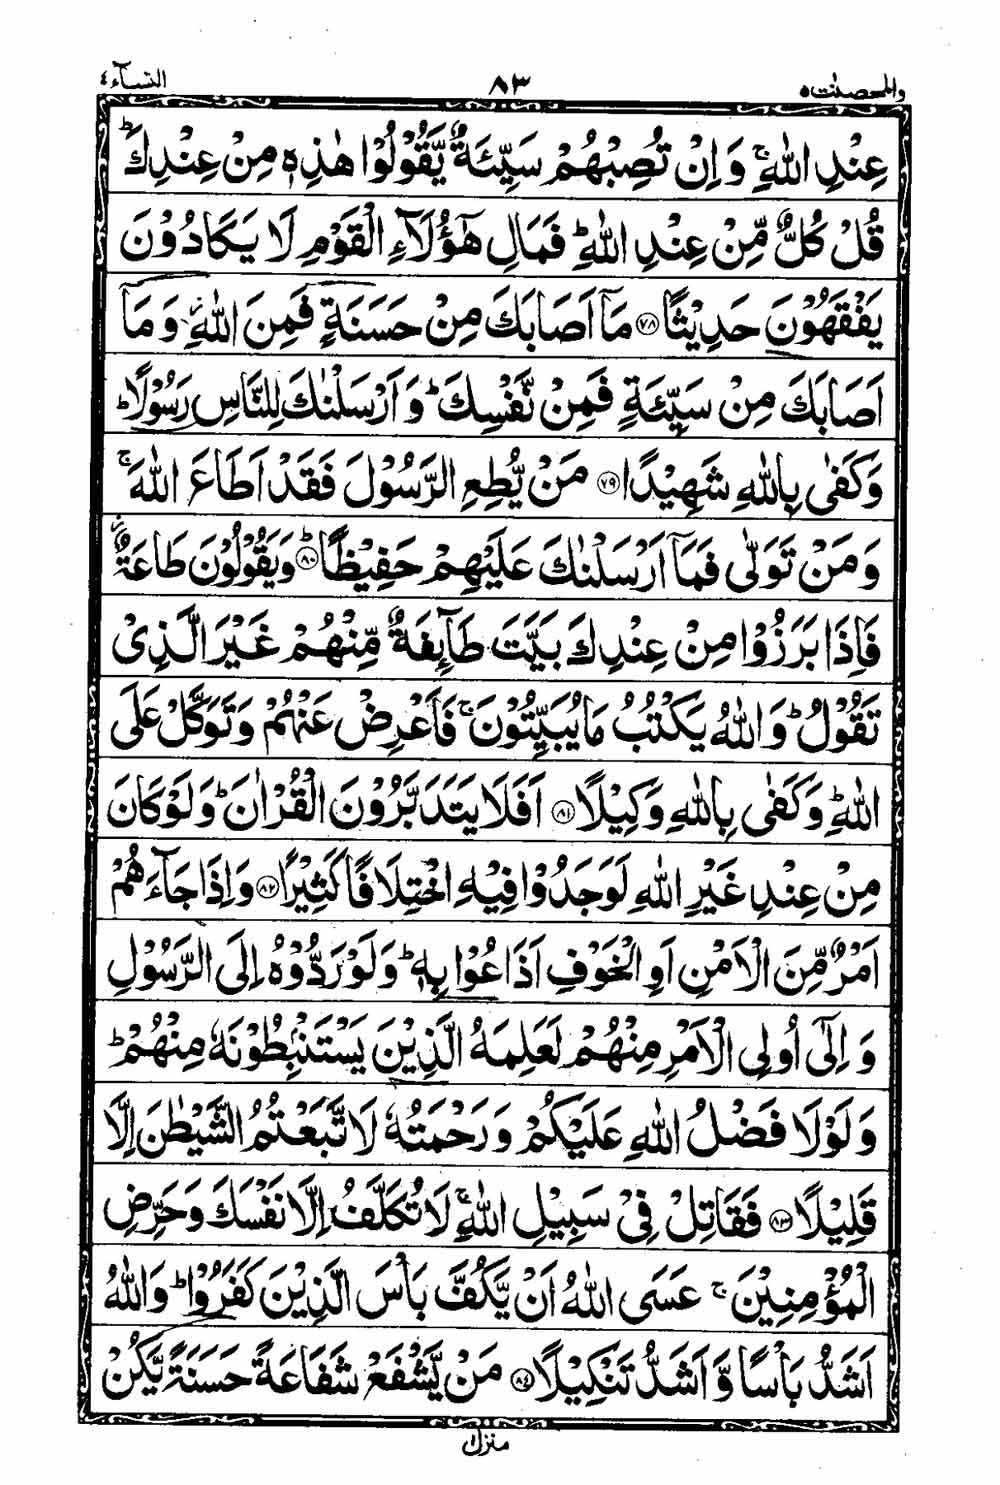 والمحصنت ٥ ٨٣ النسآء ٤
عِنْدِ اللّٰهِ ۚ وَ اِنْ تُصِبْهُمْ سَيِّئَةٌ يَّقُوْلُوْا هٰذِهٖ مِنْ عِنْدِكَ ؕ
قُلْ كُلٌّ مِّنْ عِنْدِ اللّٰهِ ؕ فَمَالِ هٰٓؤُلَآءِ الْقَوْمِ لَا يَكَادُوْنَ
يَفْقَهُوْنَ حَدِيْثًا ﴿۷۸﴾ مَاۤ اَصَابَكَ مِنْ حَسَنَةٍ فَمِنَ اللّٰهِ ؗ وَ مَاۤ
اَصَابَكَ مِنْ سَيِّئَةٍ فَمِنْ نَّفْسِكَ ؕ وَ اَرْسَلْنٰكَ لِلنَّاسِ رَسُوْلًا ؕ
وَ كَفٰى بِاللّٰهِ شَهِيْدًا ﴿۷۹﴾ مَنْ يُّطِعِ الرَّسُوْلَ فَقَدْ اَطَاعَ اللّٰهَ ۚ
وَ مَنْ تَوَلّٰى فَمَاۤ اَرْسَلْنٰكَ عَلَيْهِمْ حَفِيْظًا ؕ﴿۸۰﴾ وَ يَقُوْلُوْنَ طَاعَةٌ ؗ
فَاِذَا بَرَزُوْا مِنْ عِنْدِكَ بَيَّتَ طَآئِفَةٌ مِّنْهُمْ غَيْرَ الَّذِيْ
تَقُوْلُ ؕ وَ اللّٰهُ يَكْتُبُ مَا يُبَيِّتُوْنَ ۚ فَاَعْرِضْ عَنْهُمْ وَ تَوَكَّلْ عَلَى
اللّٰهِ ؕ وَ كَفٰى بِاللّٰهِ وَكِيْلًا ﴿۸۱﴾ اَفَلَا يَتَدَبَّرُوْنَ الْقُرْاٰنَ ؕ وَ لَوْ كَانَ
مِنْ عِنْدِ غَيْرِ اللّٰهِ لَوَجَدُوْا فِيْهِ اخْتِلَافًا كَثِيْرًا ﴿۸۲﴾ وَ اِذَا جَآءَهُمْ
اَمْرٌ مِّنَ الْاَمْنِ اَوِ الْخَوْفِ اَذَاعُوْا بِهٖ ؕ وَ لَوْ رَدُّوْهُ اِلَى الرَّسُوْلِ
وَ اِلٰۤى اُولِي الْاَمْرِ مِنْهُمْ لَعَلِمَهُ الَّذِيْنَ يَسْتَنْۢبِطُوْنَهٗ مِنْهُمْ ؕ
وَ لَوْ لَا فَضْلُ اللّٰهِ عَلَيْكُمْ وَ رَحْمَتُهٗ لَاتَّبَعْتُمُ الشَّيْطٰنَ اِلَّا
قَلِيْلًا ﴿۸۳﴾ فَقَاتِلْ فِيْ سَبِيْلِ اللّٰهِ ۚ لَا تُكَلَّفُ اِلَّا نَفْسَكَ وَ حَرِّضِ
الْمُؤْمِنِيْنَ ۚ عَسَى اللّٰهُ اَنْ يَّكُفَّ بَاْسَ الَّذِيْنَ كَفَرُوْا ؕ وَ اللّٰهُ
اَشَدُّ بَاْسًا وَّ اَشَدُّ تَنْكِيْلًا ﴿۸۴﴾ مَنْ يَّشْفَعْ شَفَاعَةً حَسَنَةً يَّكُنْ
منزل ١